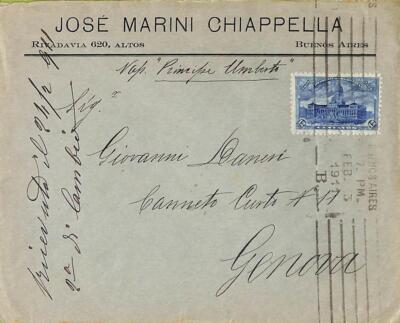 JOSÉ MARINI CHIAPPELLA
RIVADAVIA 620, ALTOS BUENOS AIRES
Vap. "Principe Umberto"
Sig.r
Giovanni Daneri
Canneto Curto N 17
Genova
ricevuta il 24/2 911
2a di cambio
CENTAVOS
BUENOS AIRES
7 PM.
FEB 3
191
B.